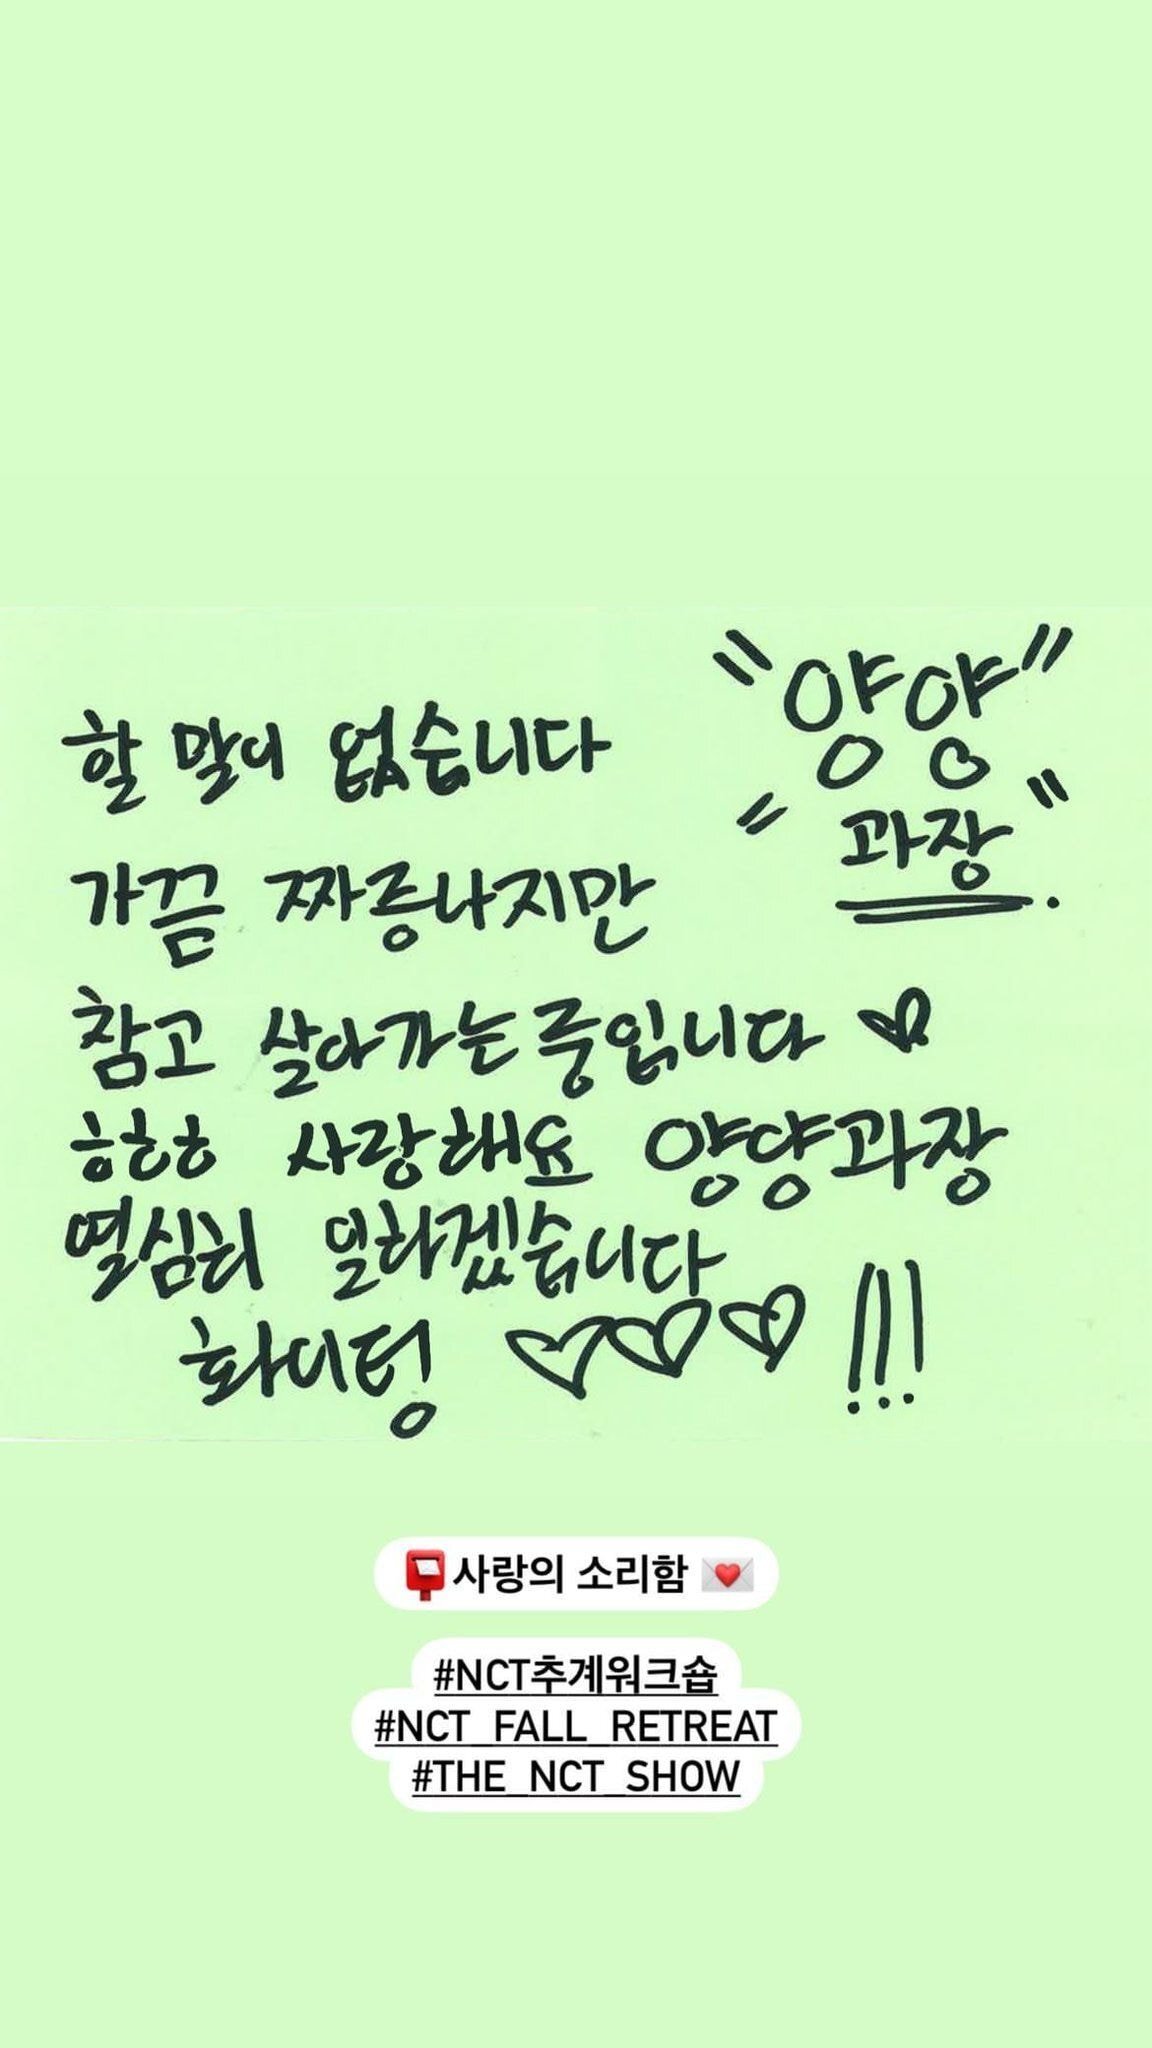 "양양"
"과장"
할 말이 없습니다
가끔 짜증나지만
참고 살아가는중입니다 ♥
ㅎㅎㅎ 사랑해요 양양과장
열심히 일하겠습니다
화이팅 ♡♡♡ !!!
📮사랑의 소리함 💌
#NCT추계워크숍
#NCT_FALL_RETREAT
#THE_NCT_SHOW